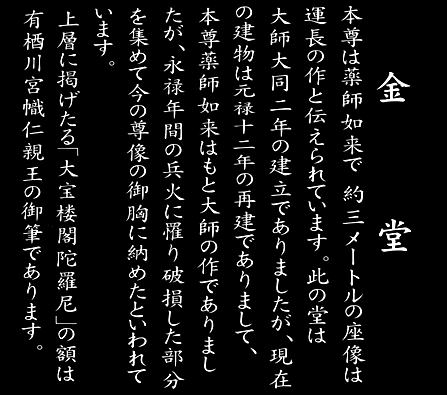 金堂
本尊は薬師如来で 約三メートルの座像は
運長の作と伝えられています。此の堂は
大師大同二年の建立でありましたが、現在
の建物は元禄十二年の再建でありまして、
本尊薬師如来はもと大師の作でありまし
たが、永禄年間の兵火に罹り破損した部分
を集めて今の尊像の御胸に納めたといわれて
います。
上層に掲げたる「大宝楼閣陀羅尼」の額は
有栖川宮幟仁親王の御筆であります。